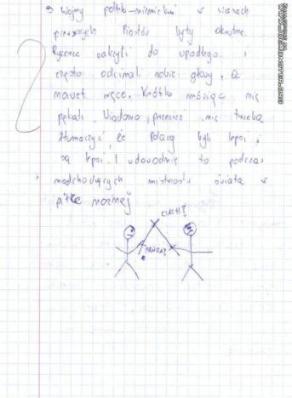 Wojny polsko-niemieckie w czasach
pierwszych Piastów były okrutne.
Rycerze walczyli do upadłego i
często odcinali sobie głowy, a
nawet ręce. Krótko mówiąc nie
pękali. Wiadomo, przecież nie trzeba
tłumaczyć, że Polacy byli lepsi i
są lepsi. I udowodnią to podczas
nadchodzących mistrzostw świata w
piłce nożnej